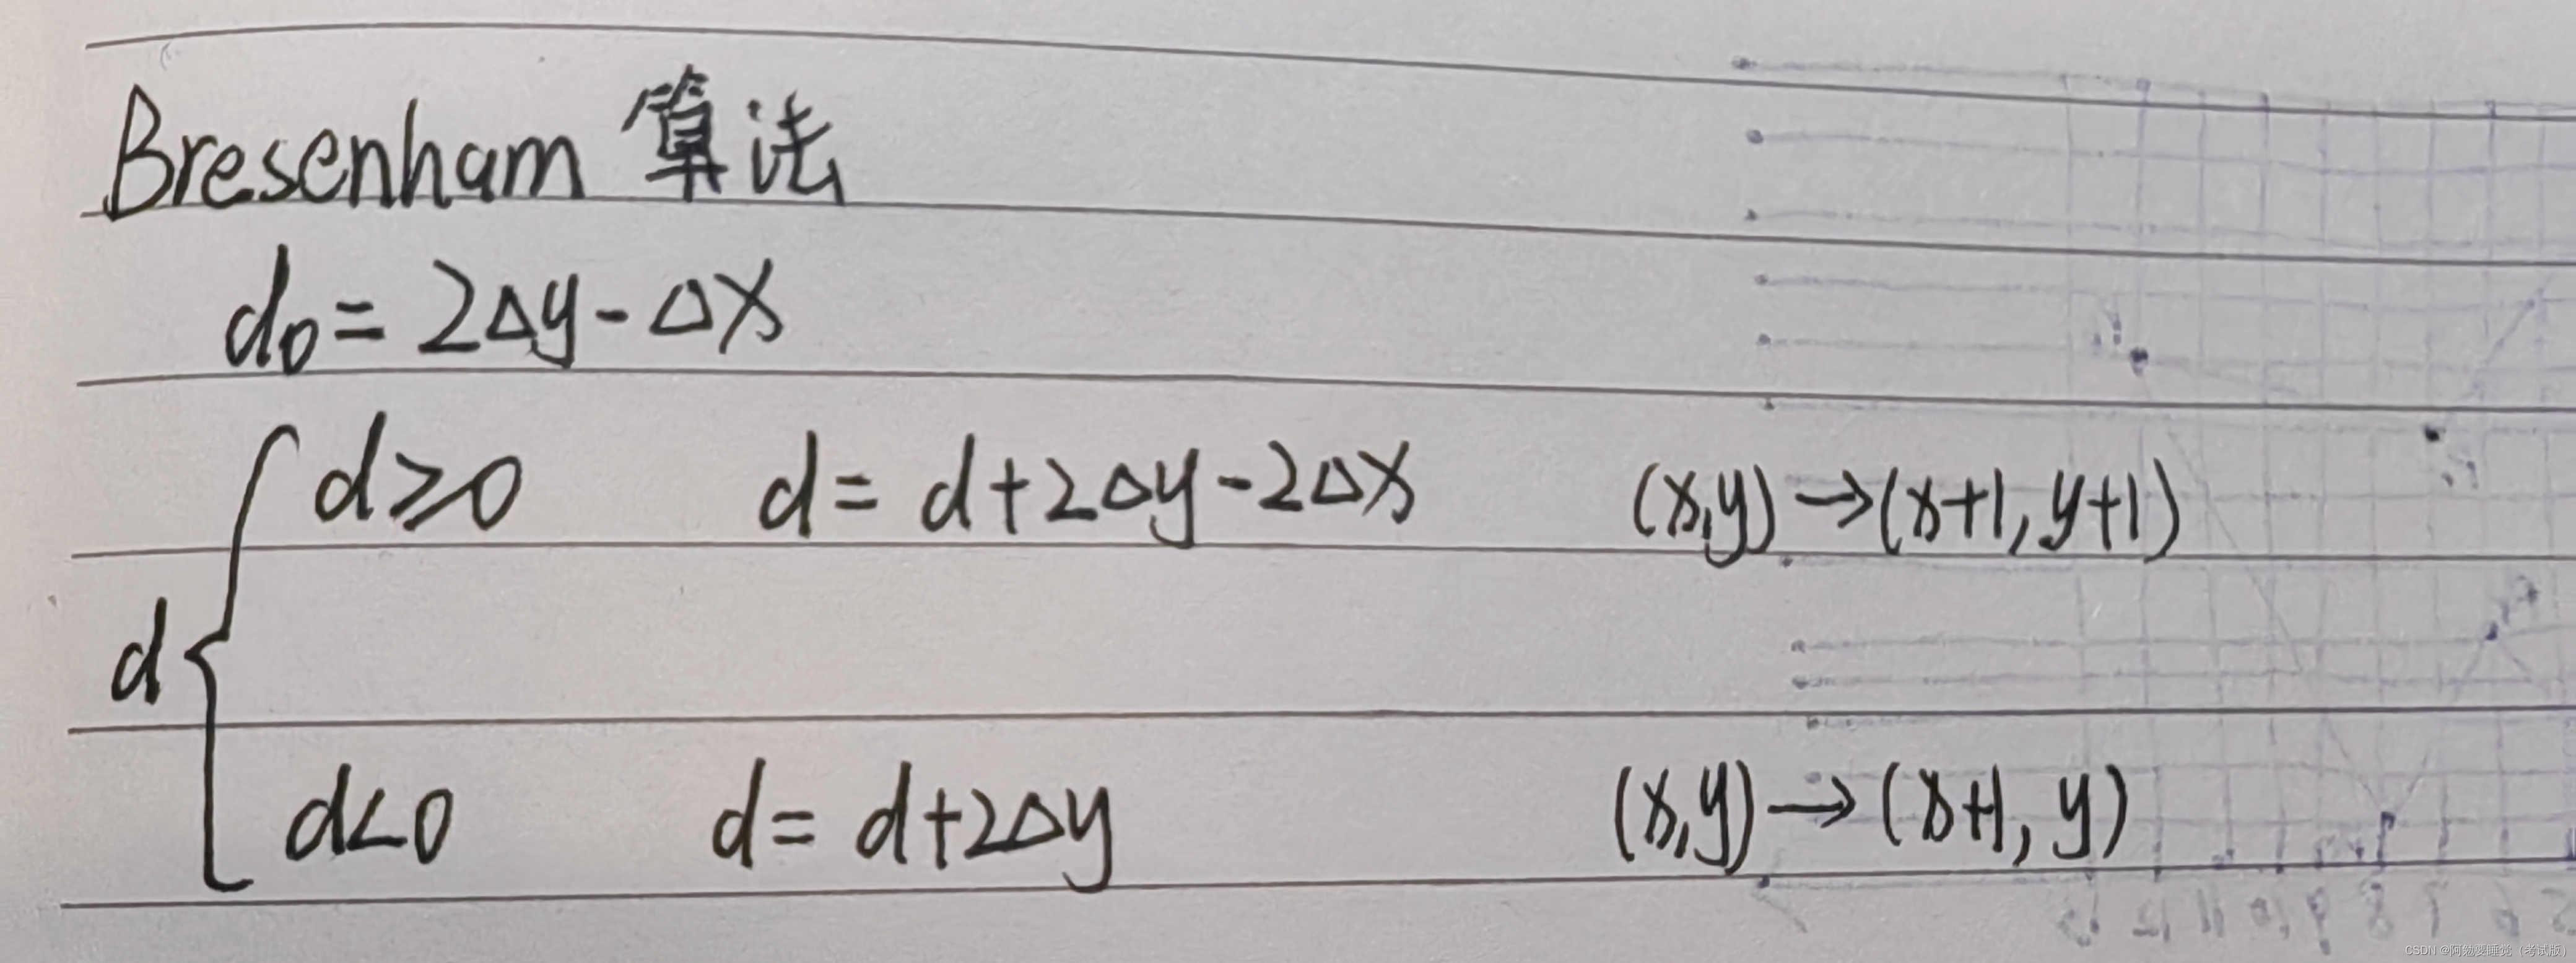 Bresenham 算法
d₀ = 2Δy - Δx
d≥0 d = d+2Δy-2Δx (x,y)→(x+1, y+1)
d
d<0 d = d+2Δy (x,y)→(x+1, y)
CSDN @阿勉要睡觉（考试版）